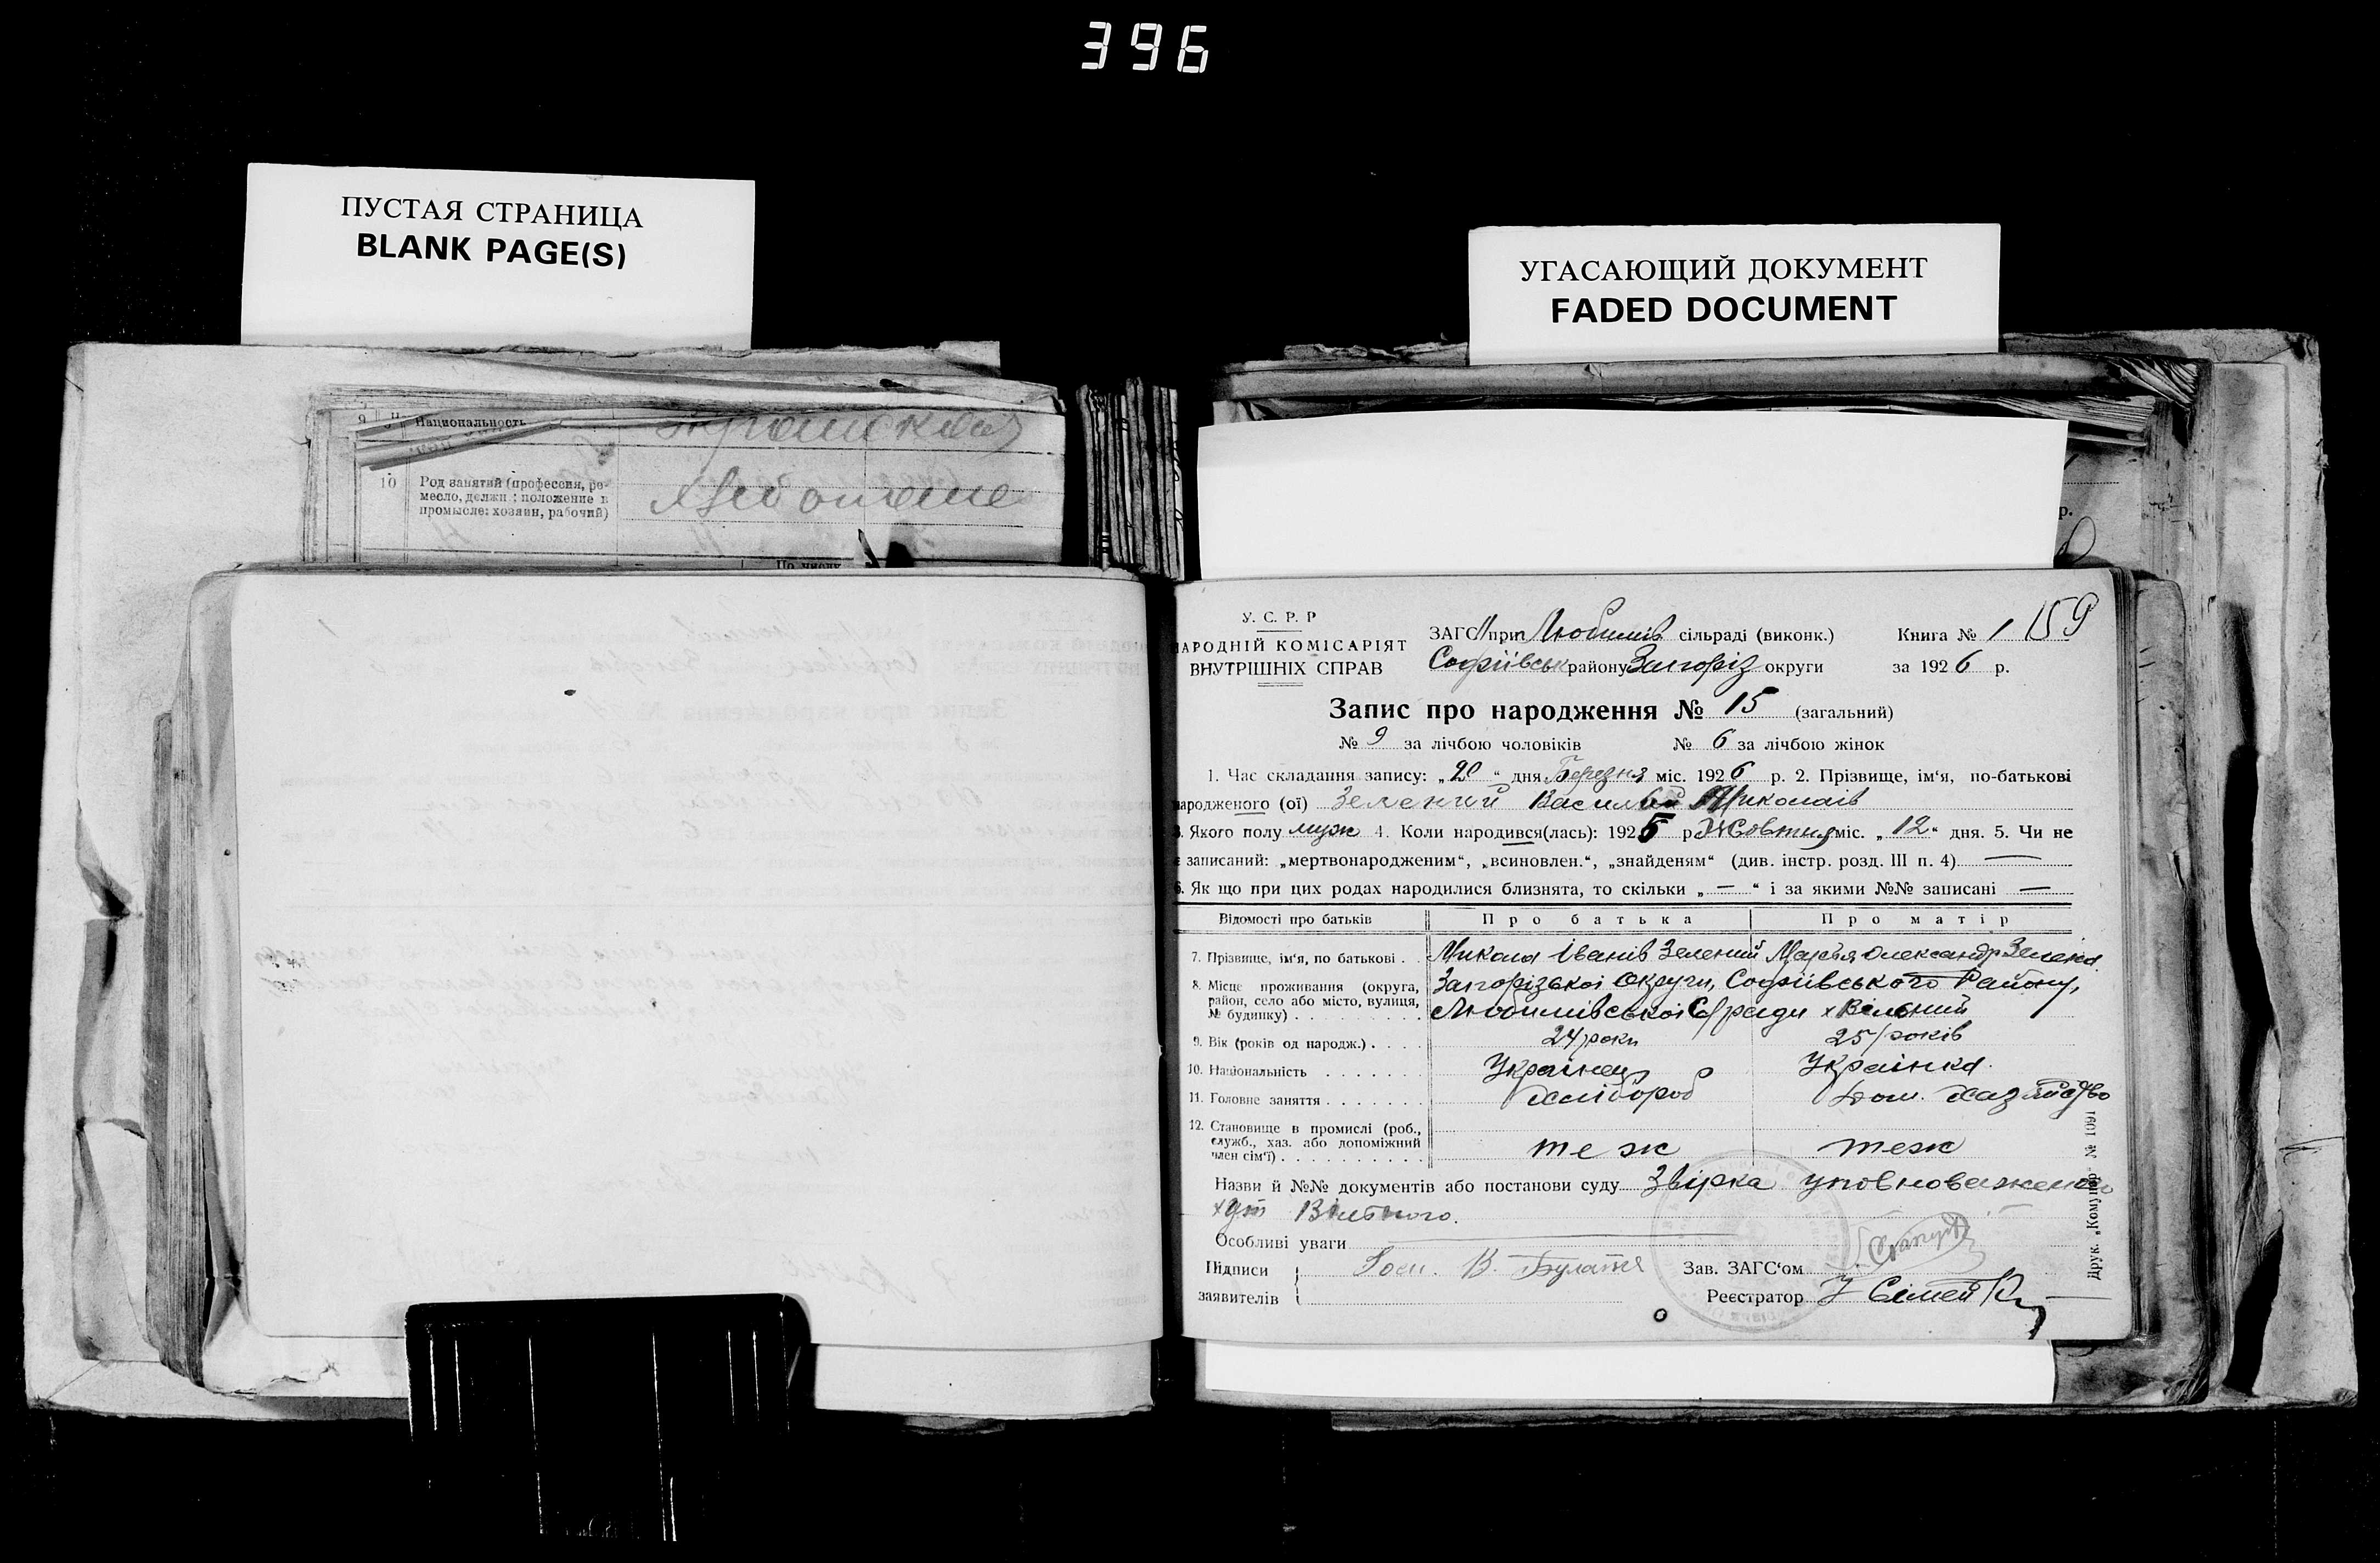 396
ПУСТАЯ СТРАНИЦА
BLANK PAGE(S)
УГАСАЮЩИЙ ДОКУМЕНТ
FADED DOCUMENT
9 Национальность
10 Род занятий (профессия, ре-
месло, должн : положение в
промысле: хозяин, рабочий)
По числу
р.
У. С. Р. Р
НАРОДНІЙ КОМІСАРІЯТ
ВНУТРІШНІХ СПРАВ
ЗАГС при Любимів сільраді (виконк.) Книга № 1 159
Софіївськ району Запоріз округи за 1926 р.
Запис про народження № 15 (загальний)
№ 9 за лічбою чоловіків № 6 за лічбою жінок
1. Час складання запису: „20“ дня Березня міс. 1926 р. 2. Прізвище, ім‘я, по-батькові
народженого (ої) Зелений Василій Миколаїв
3. Якого полу муж 4. Коли народився(лась): 1925 р Жовтня міс. „12“ дня. 5. Чи не
є записаний: „мертвонародженим“, „всиновлен.“, „знайденям“ (див. інстр. розд. III п. 4) —
6. Як що при цих родах народилися близнята, то скільки „—“ і за якими №№ записані —
Відомості про батьків Про батька Про матір
7. Прізвище, ім‘я, по батькові . . Микола Іванів Зелений Марья Олександр Зелена
8. Місце проживання (округа, Запорізької Округи, Софіївського Району,
район, село або місто, вулиця, Любимівської С/ради х Вільний
№ будинку) . . . . . . . . .
9. Вік (років од народж.) . . . . 24 роки 25 років
10. Національність . . . . . . . Українец Українка.
11. Головне заняття . . . . . . . Хлібороб Дом. хазяйство
12. Становище в промислі (роб.,
служб., хаз. або допоміжний теж теж
член сім‘ї) . . . . . . . . . .
Назви й №№ документів або постанови суду Звірка уповноваженого
хут Вільного.
Особливі уваги
Підписи Зав. ЗАГС‘ом
заявителів Реєстратор
Друк. „Комунар“ № 1091